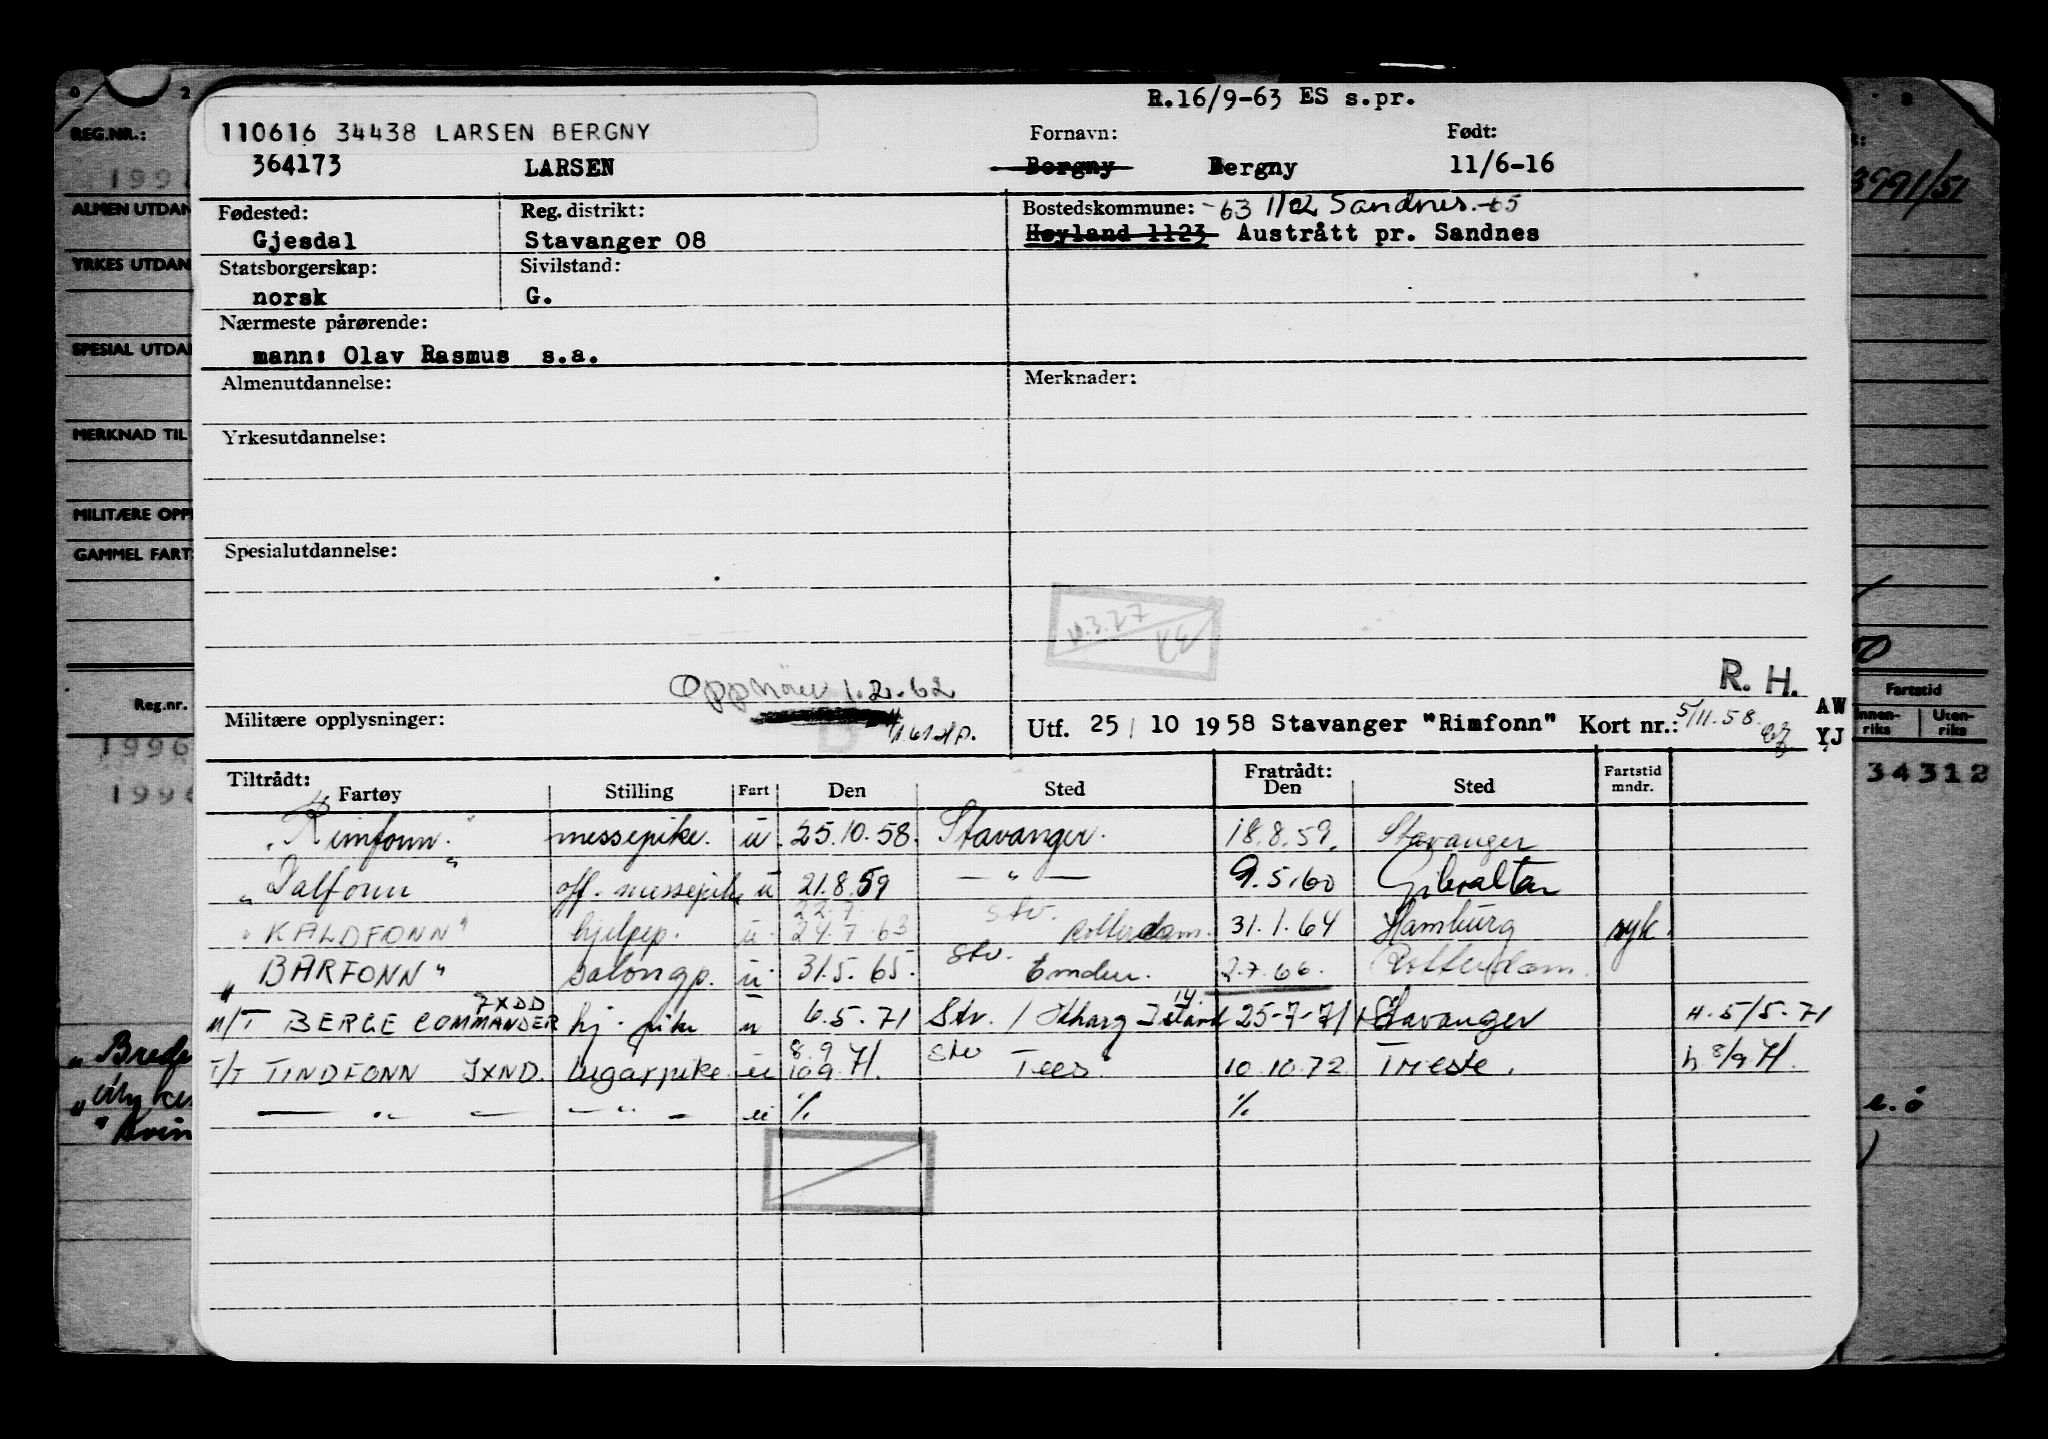 R.16/9-63 ES s.pr.
110616 34438 LARSEN BERGNY
Fornavn: Født:
364173 LARSEN Borgny Bergny 11/6-16
Fødested: Reg. distrikt: Bostedskommune: -63 1102 Sandnes -65
Gjesdal Stavanger 08 Høyland 1123 Austrått pr. Sandnes
Statsborgerskap: Sivilstand:
norsk G.
Nærmeste pårørende:
mann: Olav Rasmus s.a.
Almenutdannelse: Merknader:
Yrkesutdannelse:
Spesialutdannelse:
R. H.
1.2.62
Militære opplysninger: Utf. 25/10 1958 Stavanger "Rimfonn" Kort nr.: 5/11.58.
AW
YJ
Tiltrådt: Fratrådt:
Fartøy Stilling Fart Den Sted Den Sted Fartstid mndr.
"Rimfonn" messepike. u. 25.10.58. Stavanger. 18.8.59. Stavanger
"Dalfonn" off. messepike u 21.8.59 — " — 9.5.60 Gibraltar
22.7. Stv.
"KALDFONN" hjelpep. u. 24.7.63 Rotterdam. 31.1.64 Hamburg syk.
"BARFONN" salongp. u. 31.5.65. Stv. Emden. 2.7.66. Rotterdam.
JXDD
M/T BERGE COMMANDER hj. pike u 6.5.71 Stv. / Kharg Island 25-7-71 Stavanger H. 5/5-71
8.9
T/T TINDFONN JXND. lugarpike u 10.9.71. Stv Tees 10.10.72 Trieste. h 8/9 71.
— " — — " — u % %
REG.NR.:
ALMEN UTDAN
YRKES UTDAN
SPESIAL UTDA
MERKNAD TIL
MILITÆRE OPP
GAMMEL FART
Reg.nr.
1996
3991/51
Fartstid
Innen-riks Uten-riks
34312